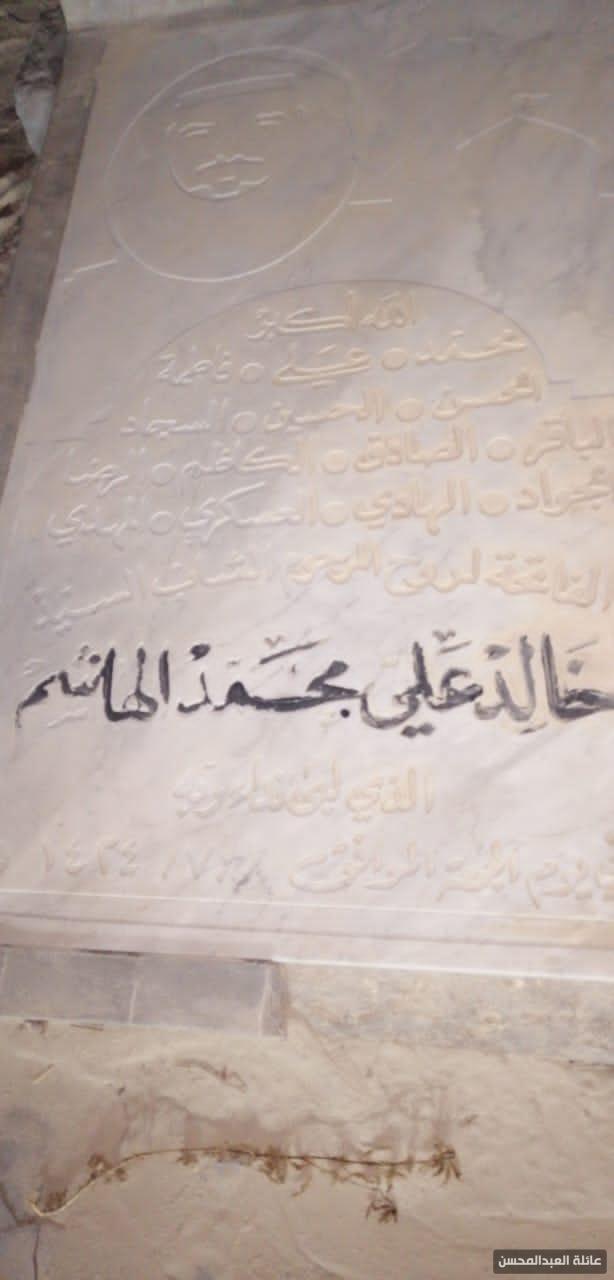 الله أكبر
محمد علي فاطمة
الحسن الحسين السجاد
الباقر الصادق الكاظم الرضا
الجواد الهادي العسكري المهدي
الفاتحة لروح المرحوم الشاب السعيد
خالد علي محمد الهاشم
الذي لبى نداء ربه
يوم الجمعة الموافق ١٤٢٤/٧
عائلة العبدالمحسن